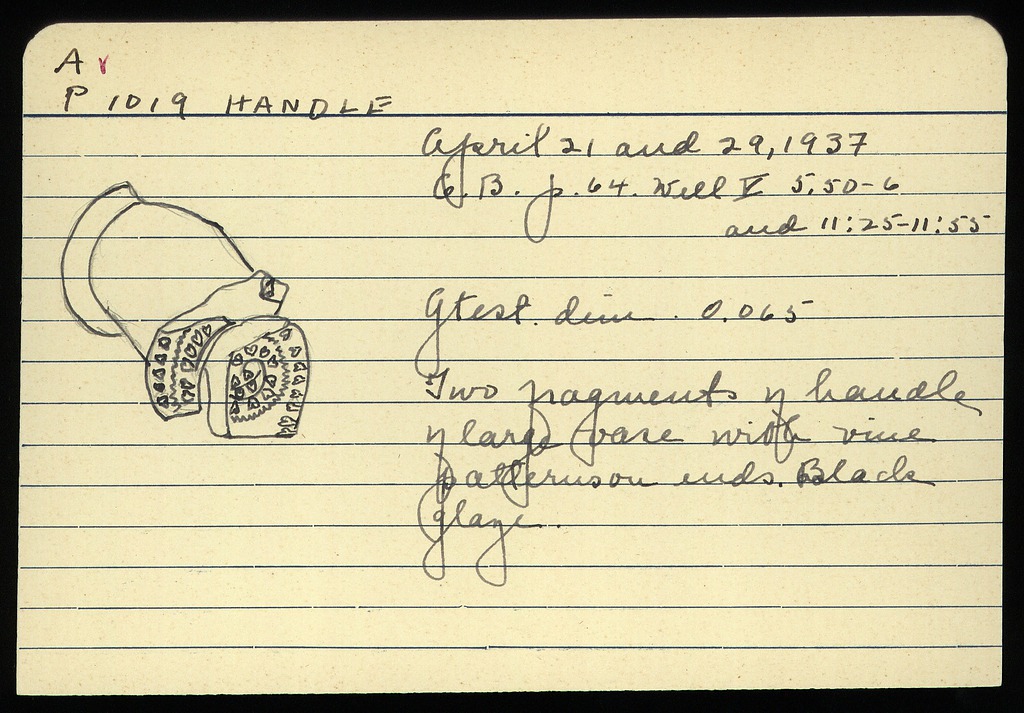 A r
P 1019 HANDLE
April 21 and 29, 1937
G.B. p. 64. Well V 5.50-6
and 11:25-11:55
Gtest. dim. 0.065
Two fragments of handle
of large vase with vine
patterns on ends. Black
glaze.